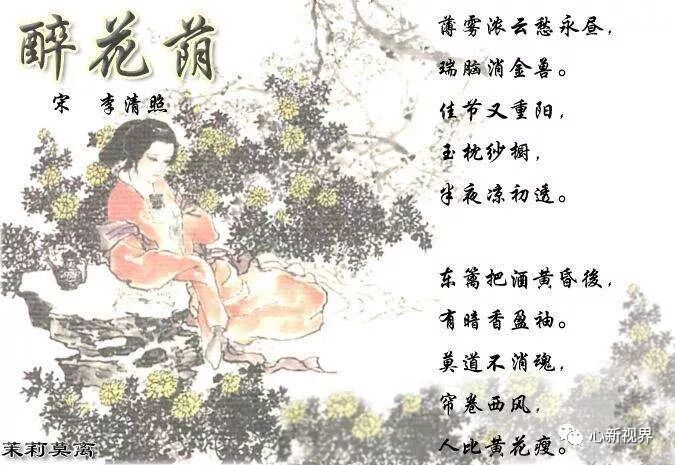 醉花荫
宋 李清照
薄雾浓云愁永昼，
瑞脑消金兽。
佳节又重阳，
玉枕纱橱，
半夜凉初透。
东篱把酒黄昏後，
有暗香盈袖。
莫道不消魂，
帘卷西风，
人比黄花瘦。
茉莉莫离
心新视界